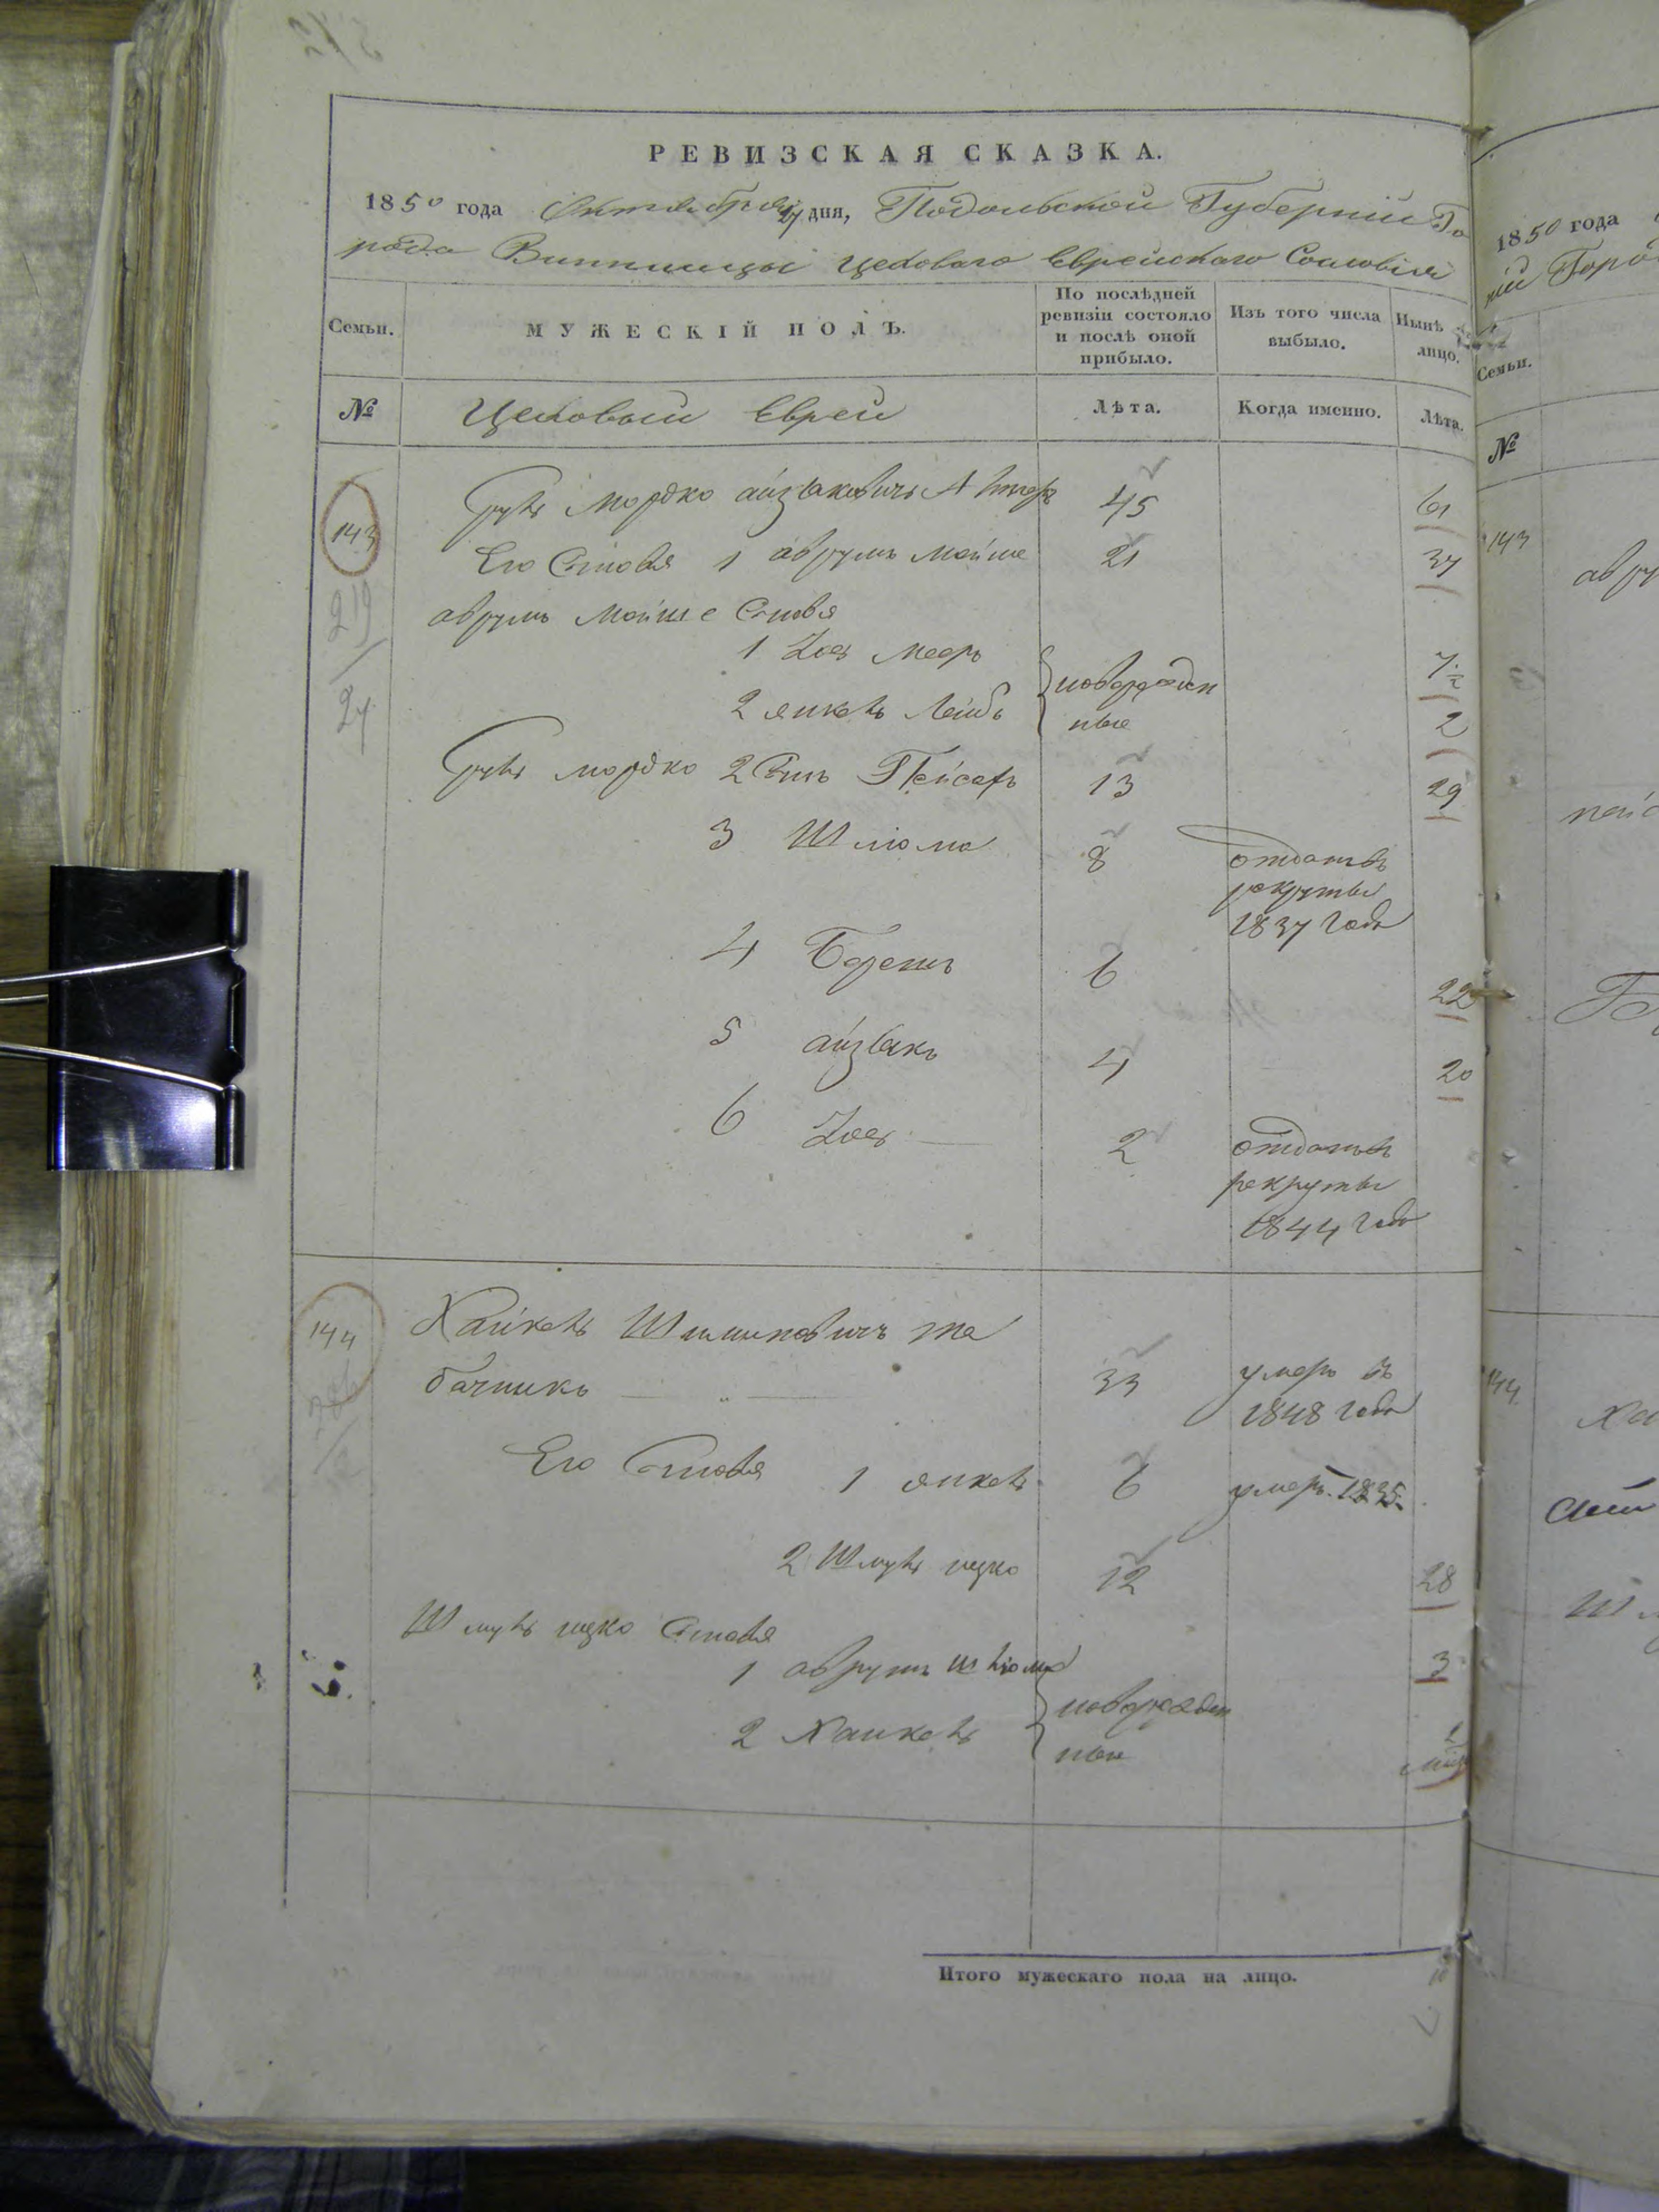 РЕВИЗСКАЯ СКАЗКА.
1850 года Октября 17 дня, Подольской Губерніи Го
рода Винницы Цеховаго Еврейскаго Сословія
Семьи.
МУЖЕСКІЙ ПОЛЪ.
По послѣдней
ревизіи состояло
и послѣ оной
прибыло.
Изъ того числа
выбыло.
Нынѣ
лицо.
№
Цеховыи Евреи
Лѣта.
Когда именно.
Лѣта.
143 Мордко айзыковичь 45 61
Его Сыновя 1 аврумъ Мойше 21 37
219
аврумъ Мойше Сыновя
1 Зось Меерь 7 ½
новорожден
27
2 янкель Лейбъ ные 2
Мордко 2 Сынъ Пейсахъ 13 29
3 Шлiома 8 отданъ въ
рекруты
1837 года
4 Берешъ 6 22
5 айзыкъ 4 20
6 Зось 2 отданъ въ
рекруты
1844 года
144 Хаикель Шимиовичъ та
бачникъ 33 умеръ въ
1848 года
Его Сыновя 1 янкель 6 умеръ 1835.
2 Шмуль ицко 12 28
Шмуль ицко Сыновя
1 аврумъ Шліома 3
новорожден
2 Хаикель ные
Итого мужескаго пола на лицо. 10
1850 года
ніи Горо
Семьи.
№
143
авру
пейс
Бе
144
Ха
Шм